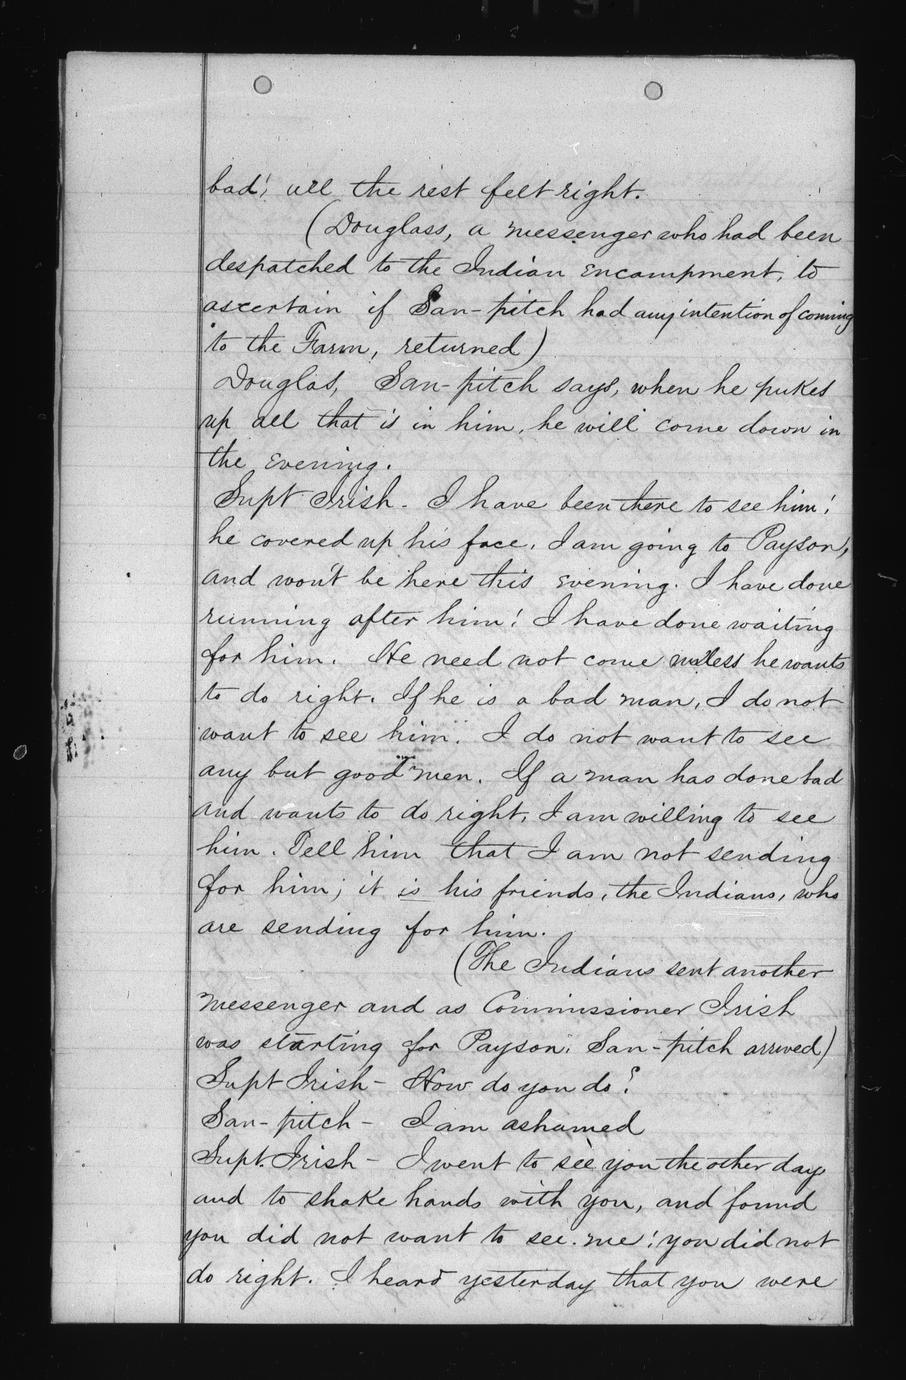 bad; all the rest felt right.
(Douglass, a messenger who had been
despatched to the Indian encampment, to
ascertain if San-pitch had any intention of coming
to the Farm, returned)
Douglas, San-pitch says, when he pukes
up all that is in him, he will come down in
the evening.
Supt Irish - I have been there to see him;
he covered up his face. I am going to Payson,
and won't be here this evening. I have done
running after him! I have done waiting
for him. He need not come unless he wants
to do right. If he is a bad man, I do not
want to see him. I do not want to see
any but good men. If a man has done bad
and wants to do right, I am willing to see
him. Tell him that I am not sending
for him; it is his friends, the Indians, who
are sending for him.
(The Indians sent another
messenger and as Commissioner Irish
was starting for Payson, San-pitch arrived)
Supt Irish - How do you do?
San-pitch - I am ashamed
Supt. Irish - I went to see you the other day
and to shake hands with you, and found
you did not want to see me; you did not
do right. I heard yesterday that you were